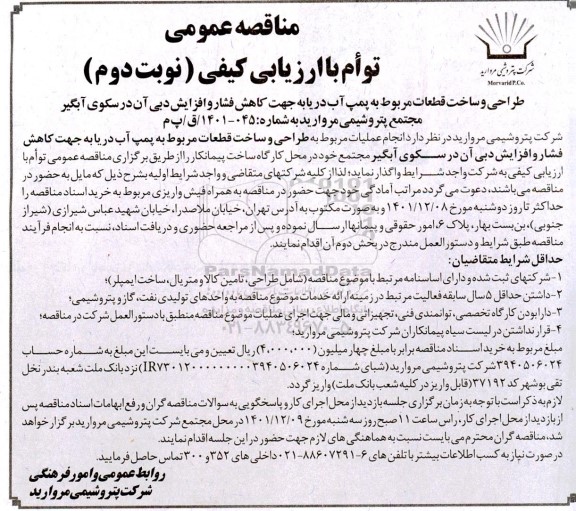 مناقصه عمومی
توأم با ارزیابی کیفی (نوبت دوم)
شرکت پتروشیمی مروارید
Morvarid P.Co.
طراحی و ساخت قطعات مربوط به پمپ آب دریا به جهت کاهش فشار و افزایش دبی آن در سکوی آبگیر
مجتمع پتروشیمی مروارید به شماره: ۰۴۵-۱۴۰۱/ق/پ م
شرکت پتروشیمی مروارید در نظر دارد انجام عملیات مربوط به طراحی و ساخت قطعات مربوط به پمپ آب دریا به جهت کاهش
فشار و افزایش دبی آن در سکوی آبگیر مجتمع خود در محل کارگاه ساخت پیمانکار را از طریق برگزاری مناقصه عمومی توأم با
ارزیابی کیفی به شرکت واجد شرایط واگذار نماید؛ لذا از کلیه شرکتهای متقاضی و واجد شرایط اولیه بشرح ذیل که مایل به حضور در
مناقصه می‌باشند، دعوت می گردد مراتب آمادگی خود جهت حضور در مناقصه به همراه فیش واریزی مربوط به خرید اسناد مناقصه را
حداکثر تا روز دوشنبه مورخ ۱۴۰۱/۱۲/۰۸ و به صورت مکتوب به آدرس تهران، خیابان ملاصدرا، خیابان شهید عباس شیرازی (شیراز
جنوبی)، بن‌بست بهار، پلاک ۶، امور حقوقی و پیمانها ارسال نموده و پس از مراجعه حضوری و دریافت اسناد، نسبت به انجام فرآیند
مناقصه طبق شرایط و دستورالعمل مندرج در بخش دوم آن اقدام نمایند.
حداقل شرایط متقاضیان:
۱-شرکتهای ثبت شده و دارای اساسنامه مرتبط با موضوع مناقصه (شامل طراحی، تامین کالا و متریال، ساخت ایمپلر)؛
۲-داشتن حداقل ۵ سال سابقه فعالیت مرتبط در زمینه ارائه خدمات موضوع مناقصه به واحدهای تولیدی نفت، گاز و پتروشیمی؛
۳-دارا بودن کارگاه تخصصی، توانمندی فنی، تجهیزاتی و مالی جهت اجرای عملیات موضوع مناقصه منطبق با دستورالعمل شرکت در مناقصه؛
۴-قرار نداشتن در لیست سیاه پیمانکاران شرکت پتروشیمی مروارید؛
مبلغ مربوط به خرید اسناد مناقصه برابر با مبلغ چهار میلیون (۴,۰۰۰,۰۰۰) ریال تعیین و می بایست این مبلغ به شماره حساب
۳۹۴۰۵۰۶۰۲۴ شرکت پتروشیمی مروارید (شبای شماره IR۷۳۰۱۲۰۰۰۰۰۰۰۰۰۳۹۴۰۵۰۶۰۲۴) نزد بانک ملت شعبه بندر نخل
تقی بوشهر کد ۳۷۱۹۲ (قابل واریز در کلیه شعب بانک ملت) واریز گردد.
لازم به ذکر است با توجه به زمان برگزاری جلسه بازدید از محل اجرای کار و پاسخگویی به سوالات مناقصه گران و رفع ابهامات اسناد مناقصه پس
از بازدید از محل اجرای کار، راس ساعت ۱۱ صبح روز سه شنبه مورخ ۱۴۰۱/۱۲/۰۹ در محل مجتمع شرکت پتروشیمی مروارید برگزار خواهد
شد، مناقصه گران محترم می بایست نسبت به هماهنگی های لازم جهت حضور در این جلسه اقدام نمایند.
در صورت نیاز به کسب اطلاعات بیشتر با تلفن های ۶-۸۸۶۰۷۲۹۱-۰۲۱ داخلی های ۳۵۲ و ۳۰۰ تماس حاصل فرمایید.
روابط عمومی و امور فرهنگی
شرکت پتروشیمی مروارید
ParsNamadData
۰۲۱-۸۸۳۴۹۶۷۰-۵